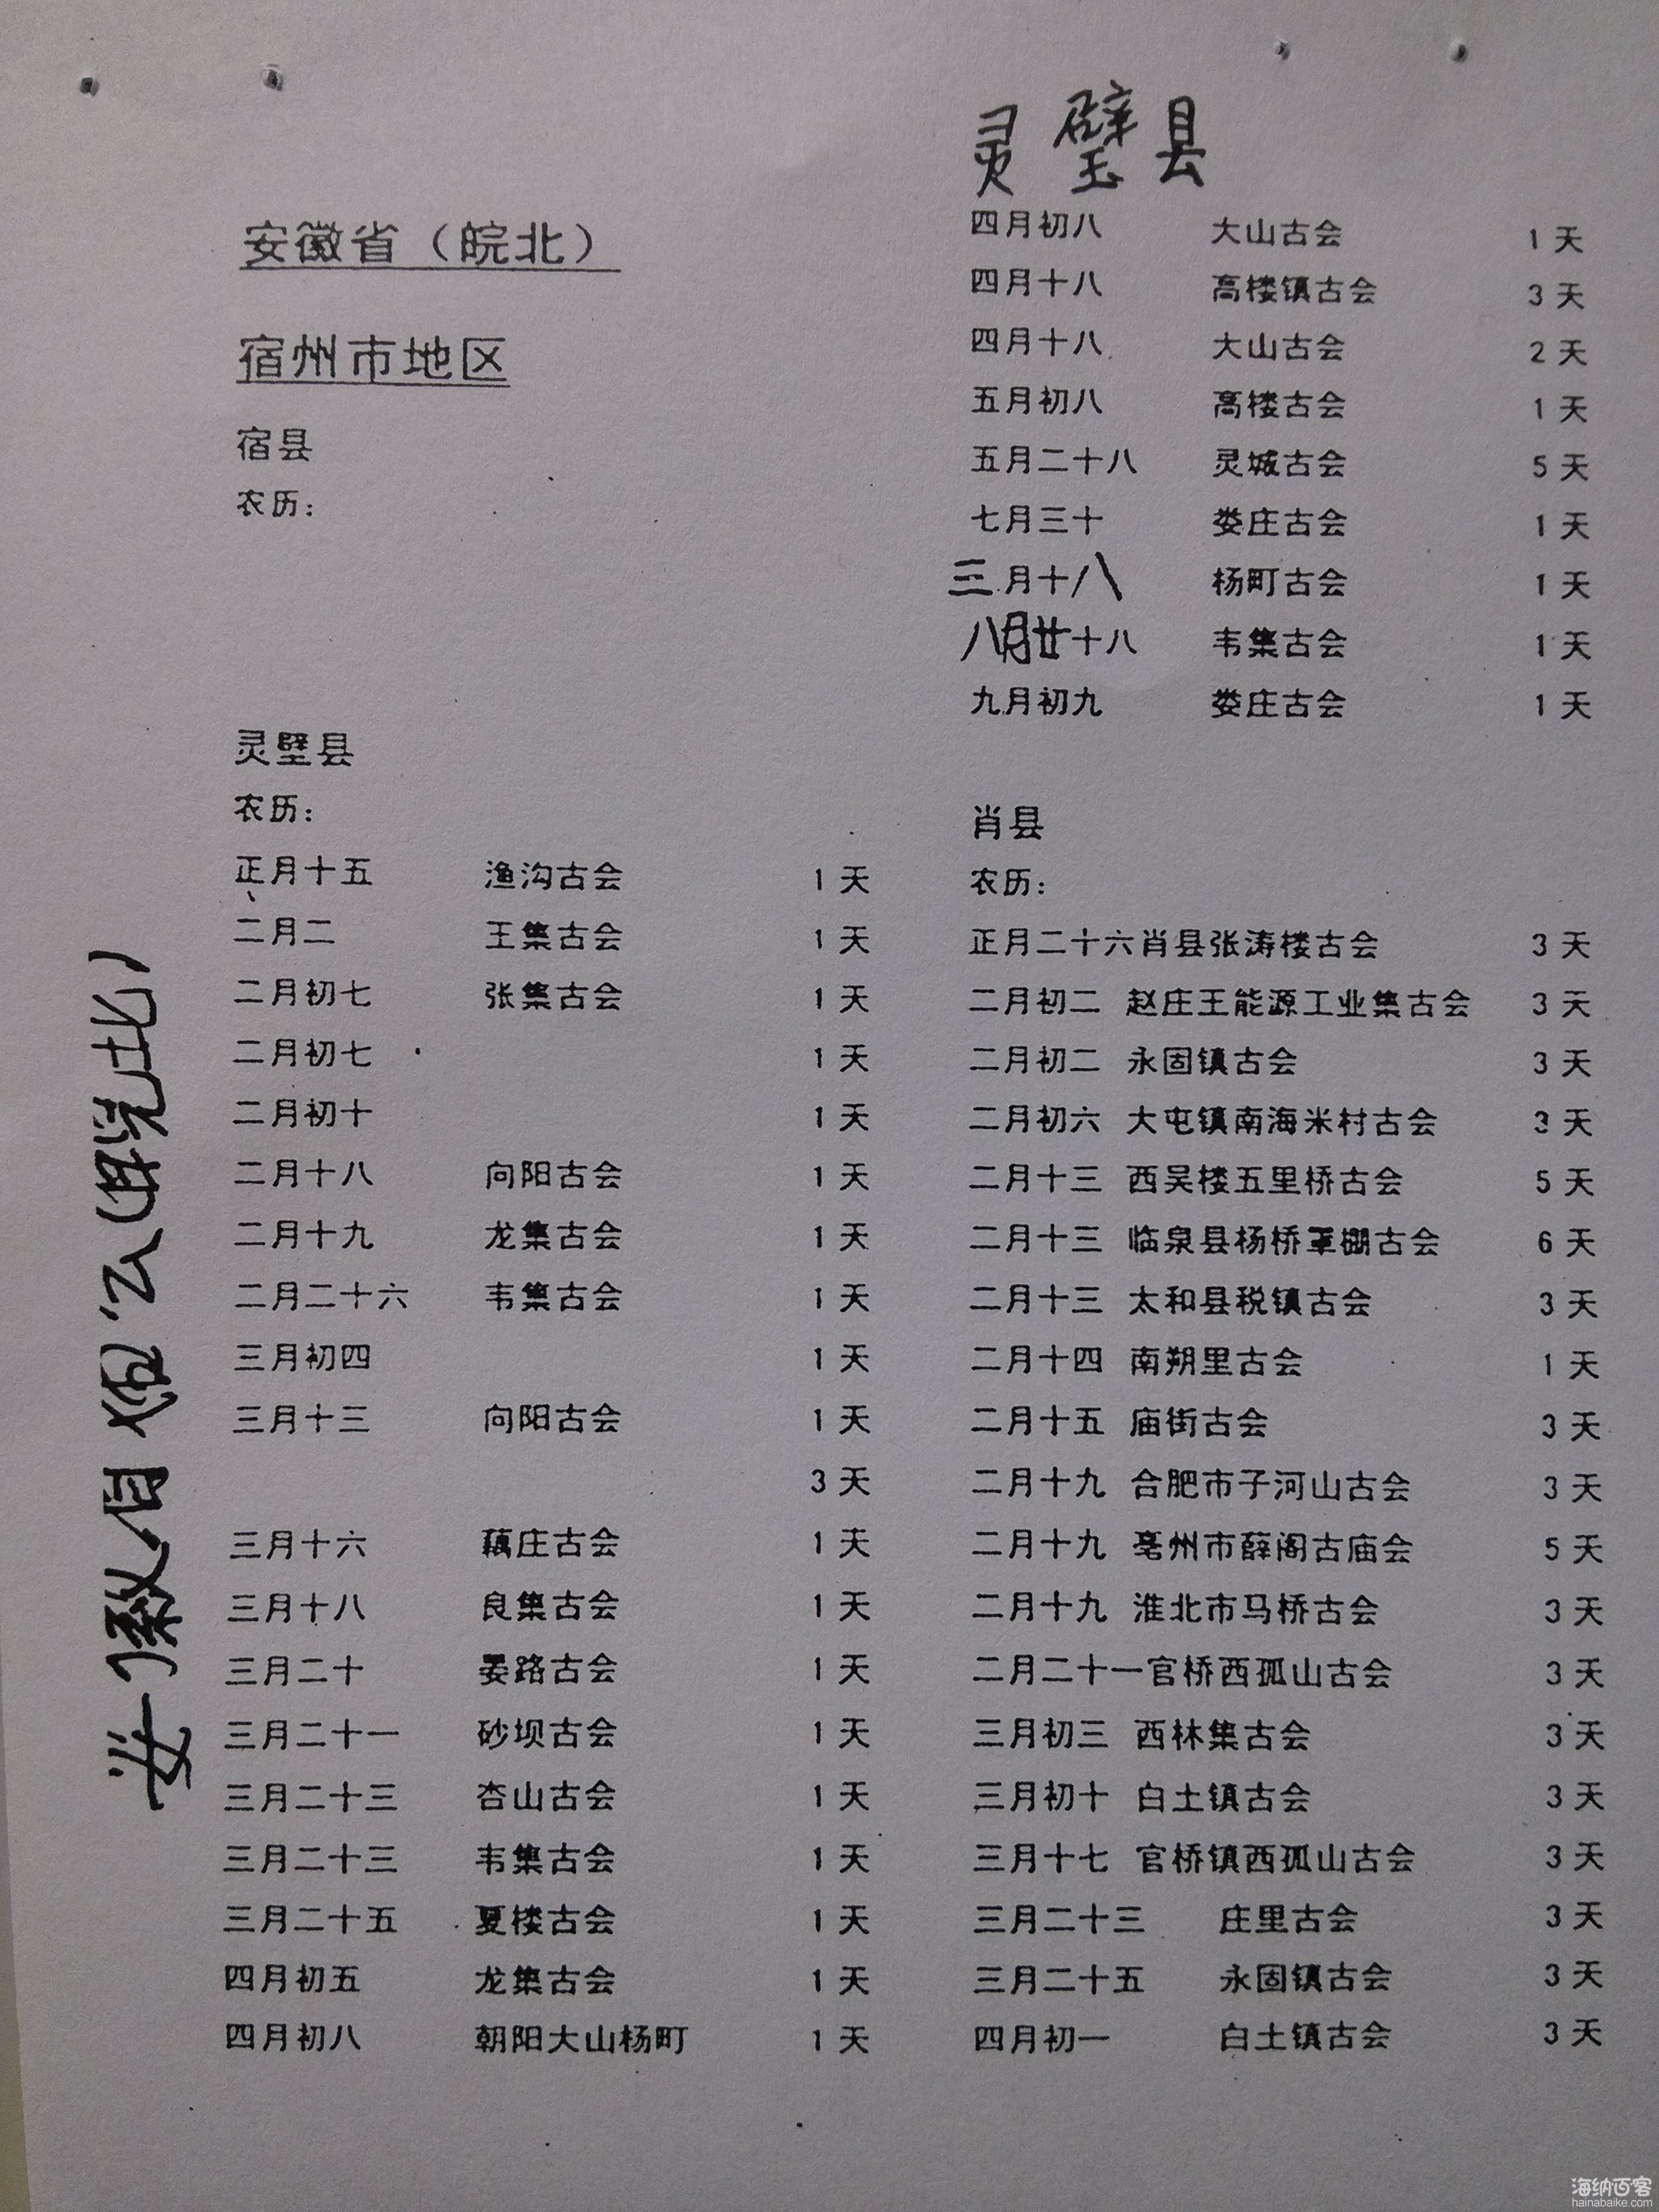 安徽省（皖北）
宿州市地区
宿县
农历：
灵壁县
农历：
正月十五 渔沟古会 1天
二月二 王集古会 1天
二月初七 张集古会 1天
二月初七 1天
二月初十 1天
二月十八 向阳古会 1天
二月十九 龙集古会 1天
二月二十六 韦集古会 1天
三月初四 1天
三月十三 向阳古会 1天
3天
三月十六 藕庄古会 1天
三月十八 良集古会 1天
三月二十 晏路古会 1天
三月二十一 砂坝古会 1天
三月二十三 杏山古会 1天
三月二十三 韦集古会 1天
三月二十五 夏楼古会 1天
四月初五 龙集古会 1天
四月初八 朝阳大山杨町 1天
灵璧县
四月初八 大山古会 1天
四月十八 高楼镇古会 3天
四月十八 大山古会 2天
五月初八 高楼古会 1天
五月二十八 灵城古会 5天
七月三十 娄庄古会 1天
三月十八 杨町古会 1天
八月廿十八 韦集古会 1天
九月初九 娄庄古会 1天
肖县
农历：
正月二十六肖县张涛楼古会 3天
二月初二 赵庄王能源工业集古会 3天
二月初二 永固镇古会 3天
二月初六 大屯镇南海米村古会 3天
二月十三 西吴楼五里桥古会 5天
二月十三 临泉县杨桥覃棚古会 6天
二月十三 太和县税镇古会 3天
二月十四 南朔里古会 1天
二月十五 庙街古会 3天
二月十九 合肥市子河山古会 3天
二月十九 亳州市薛阁古庙会 5天
二月十九 淮北市马桥古会 3天
二月二十一官桥西孤山古会 3天
三月初三 西林集古会 3天
三月初十 白土镇古会 3天
三月十七 官桥镇西孤山古会 3天
三月二十三 庄里古会 3天
三月二十五 永固镇古会 3天
四月初一 白土镇古会 3天
海纳百客
hainabaike.com